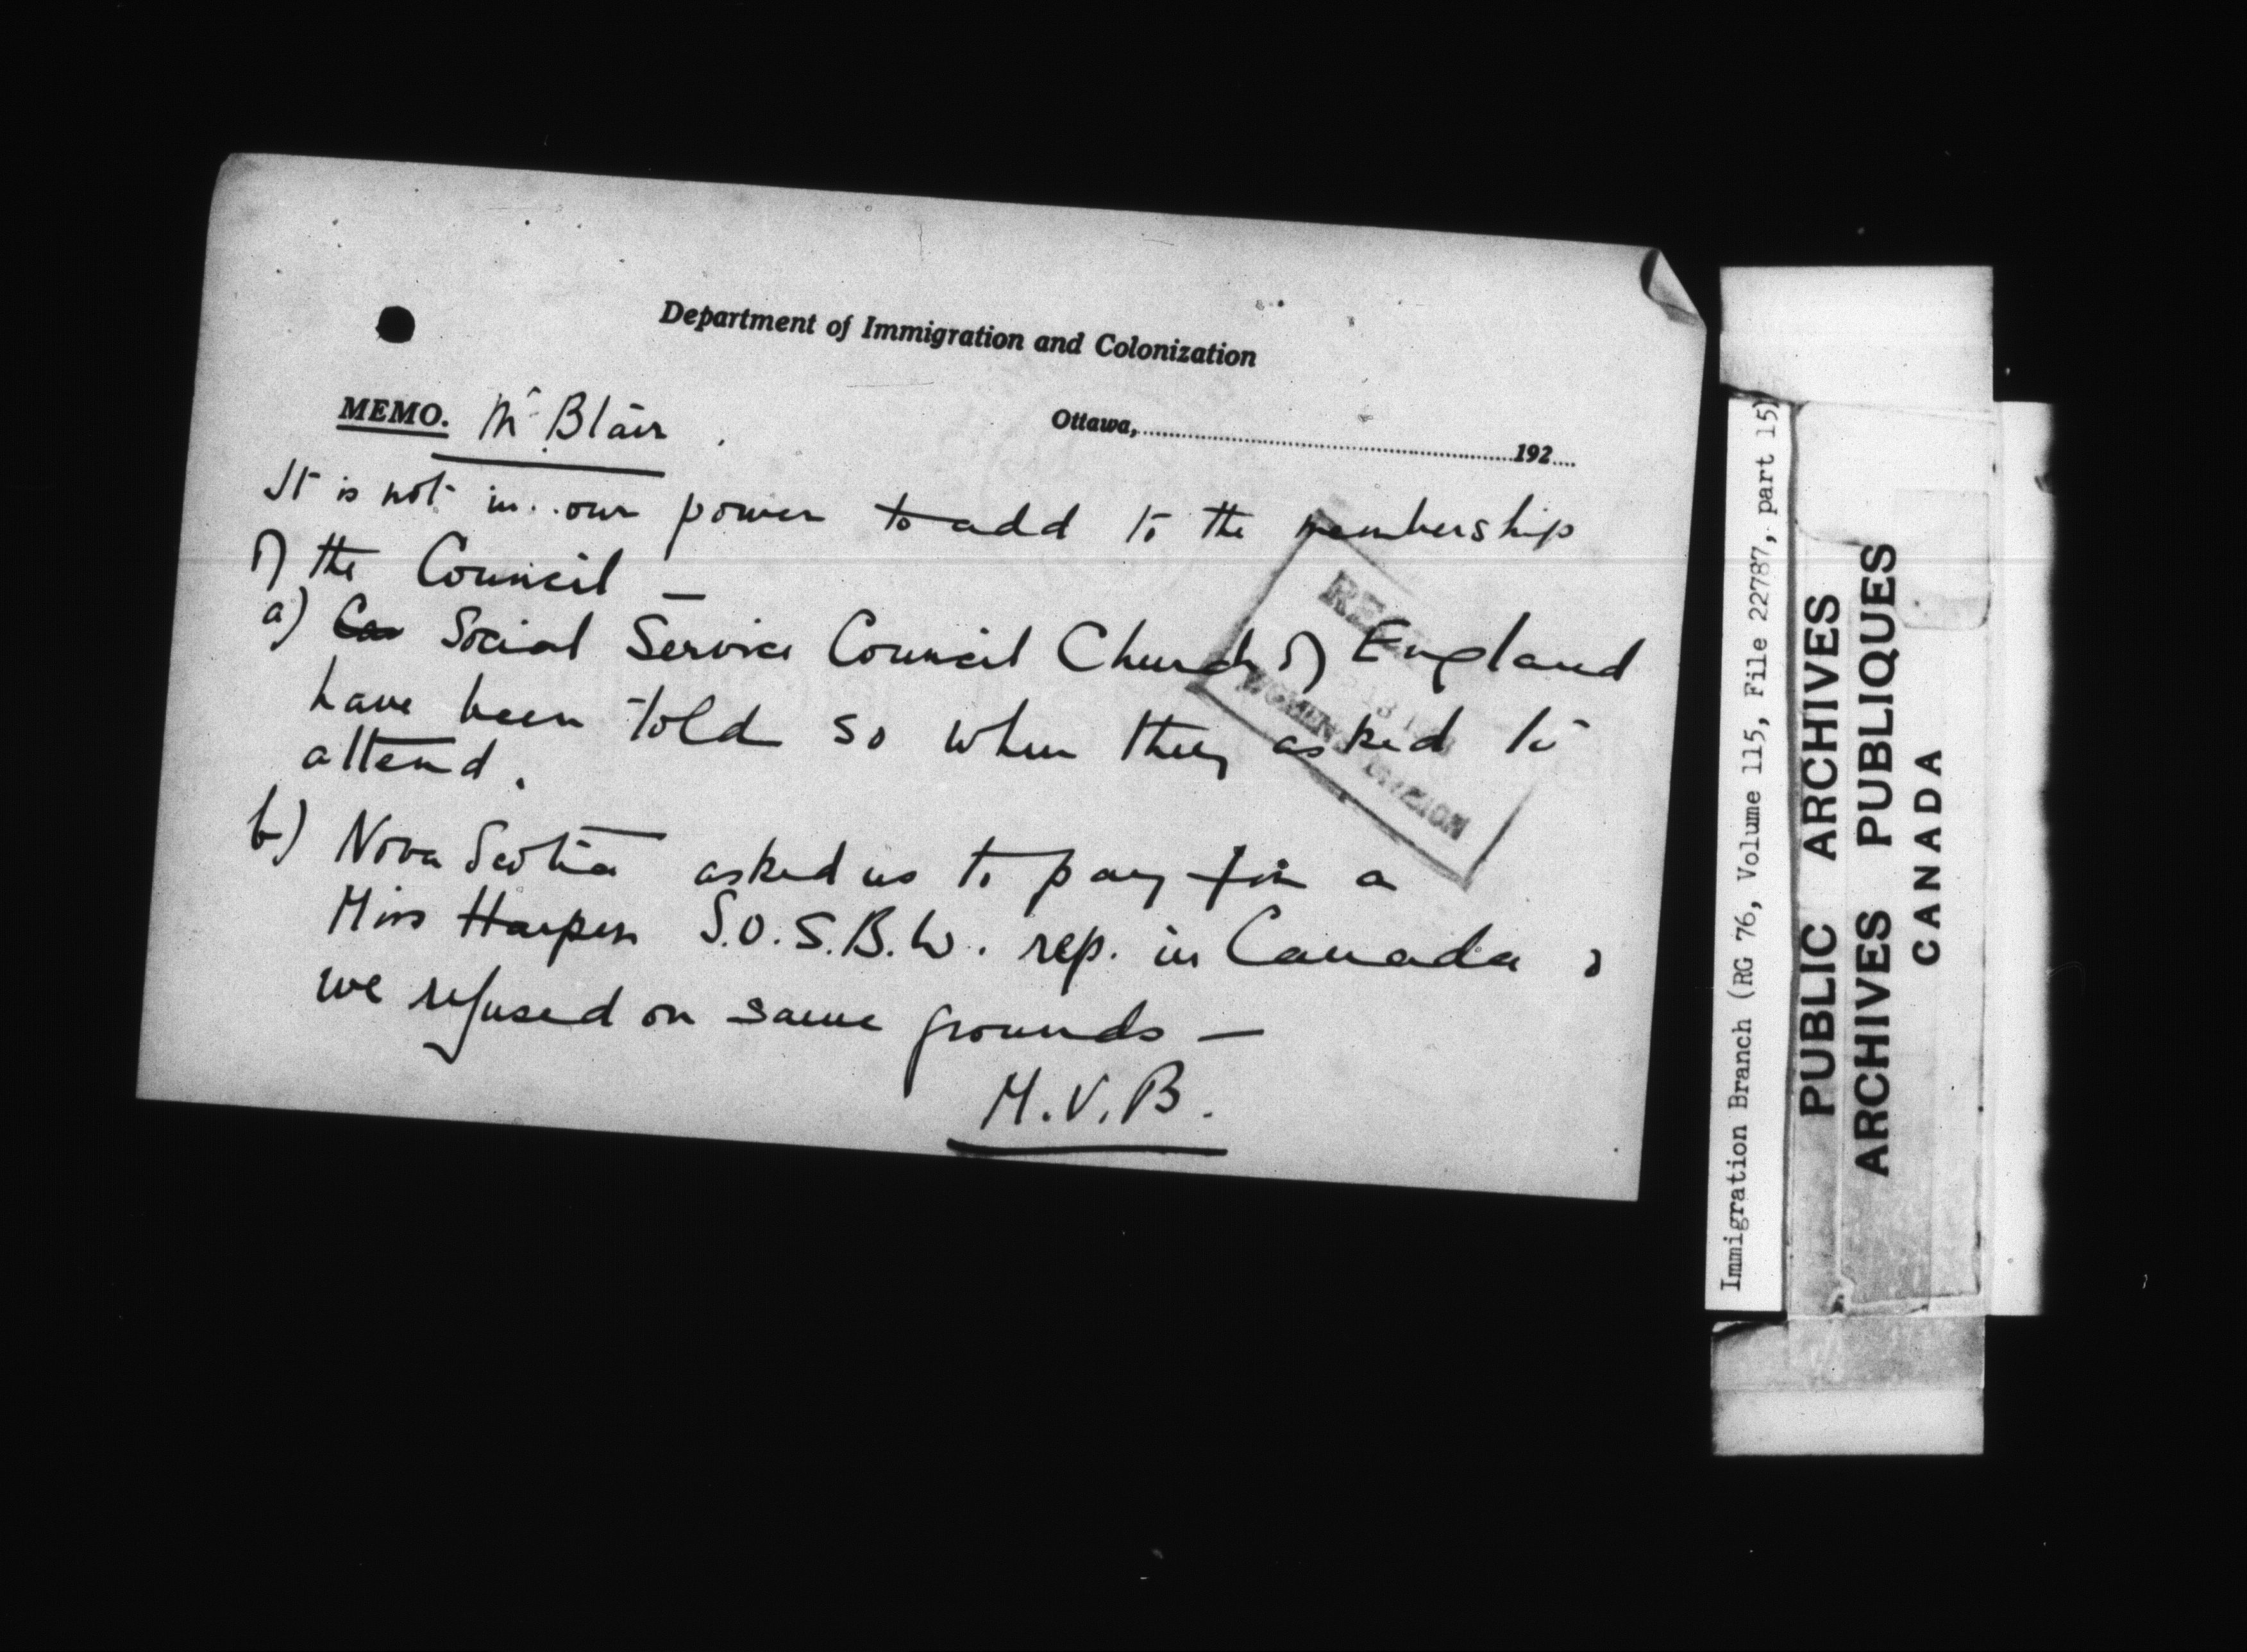 Department of Immigration and Colonization
MEMO. Mr Blair.
Ottawa, 192
It is not in our power to add to the membership
of the Council —
a) Social Service Council Church of England
have been told so when they asked to
attend.
b) Nova Scotia asked us to pay for a
Miss Harper S.O.S.B.W. rep. in Canada &
we refused on same grounds —
M.V.B.
WOMEN'S DIVISION
Immigration Branch (RG 76, Volume 115, File 22787, part 15)
PUBLIC ARCHIVES
ARCHIVES PUBLIQUES
CANADA